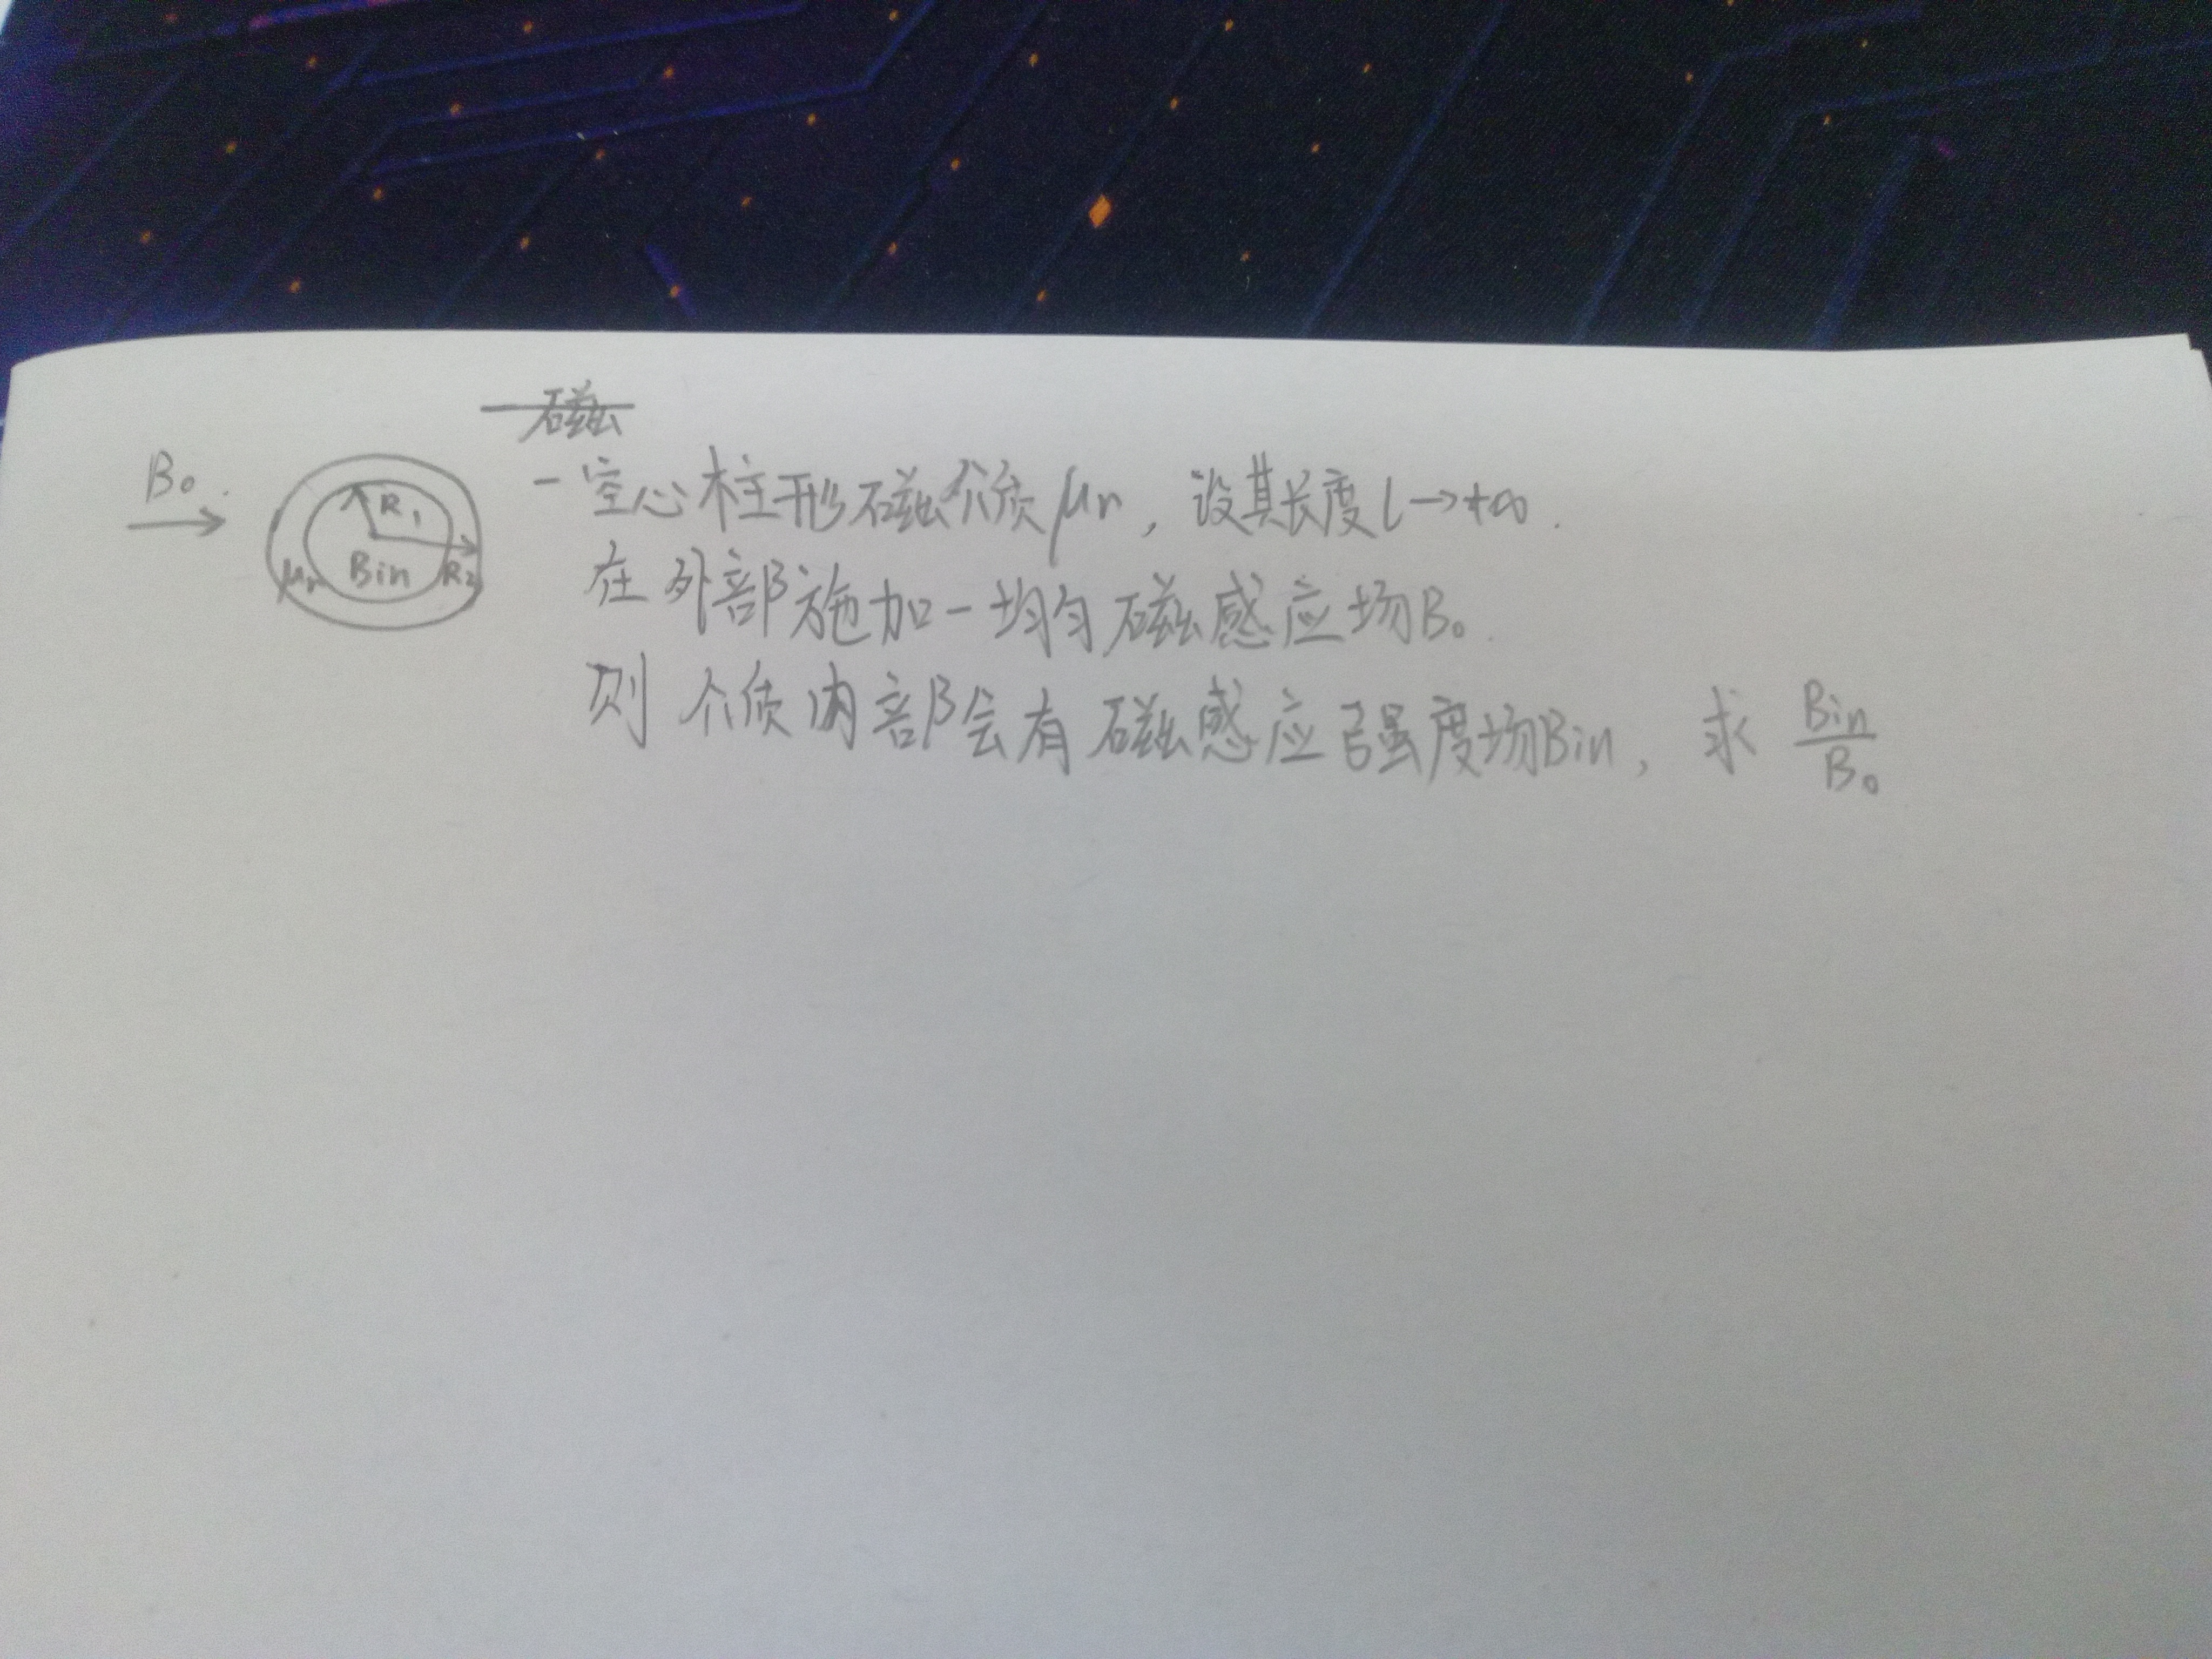 磁
B₀
R₁
μr Bin R₂
一空心柱形磁介质μr，设其长度l→+∞.
在外部施加一均匀磁感应场B₀.
则介质内部会有磁感应强度场Bin，求 Bin/B₀